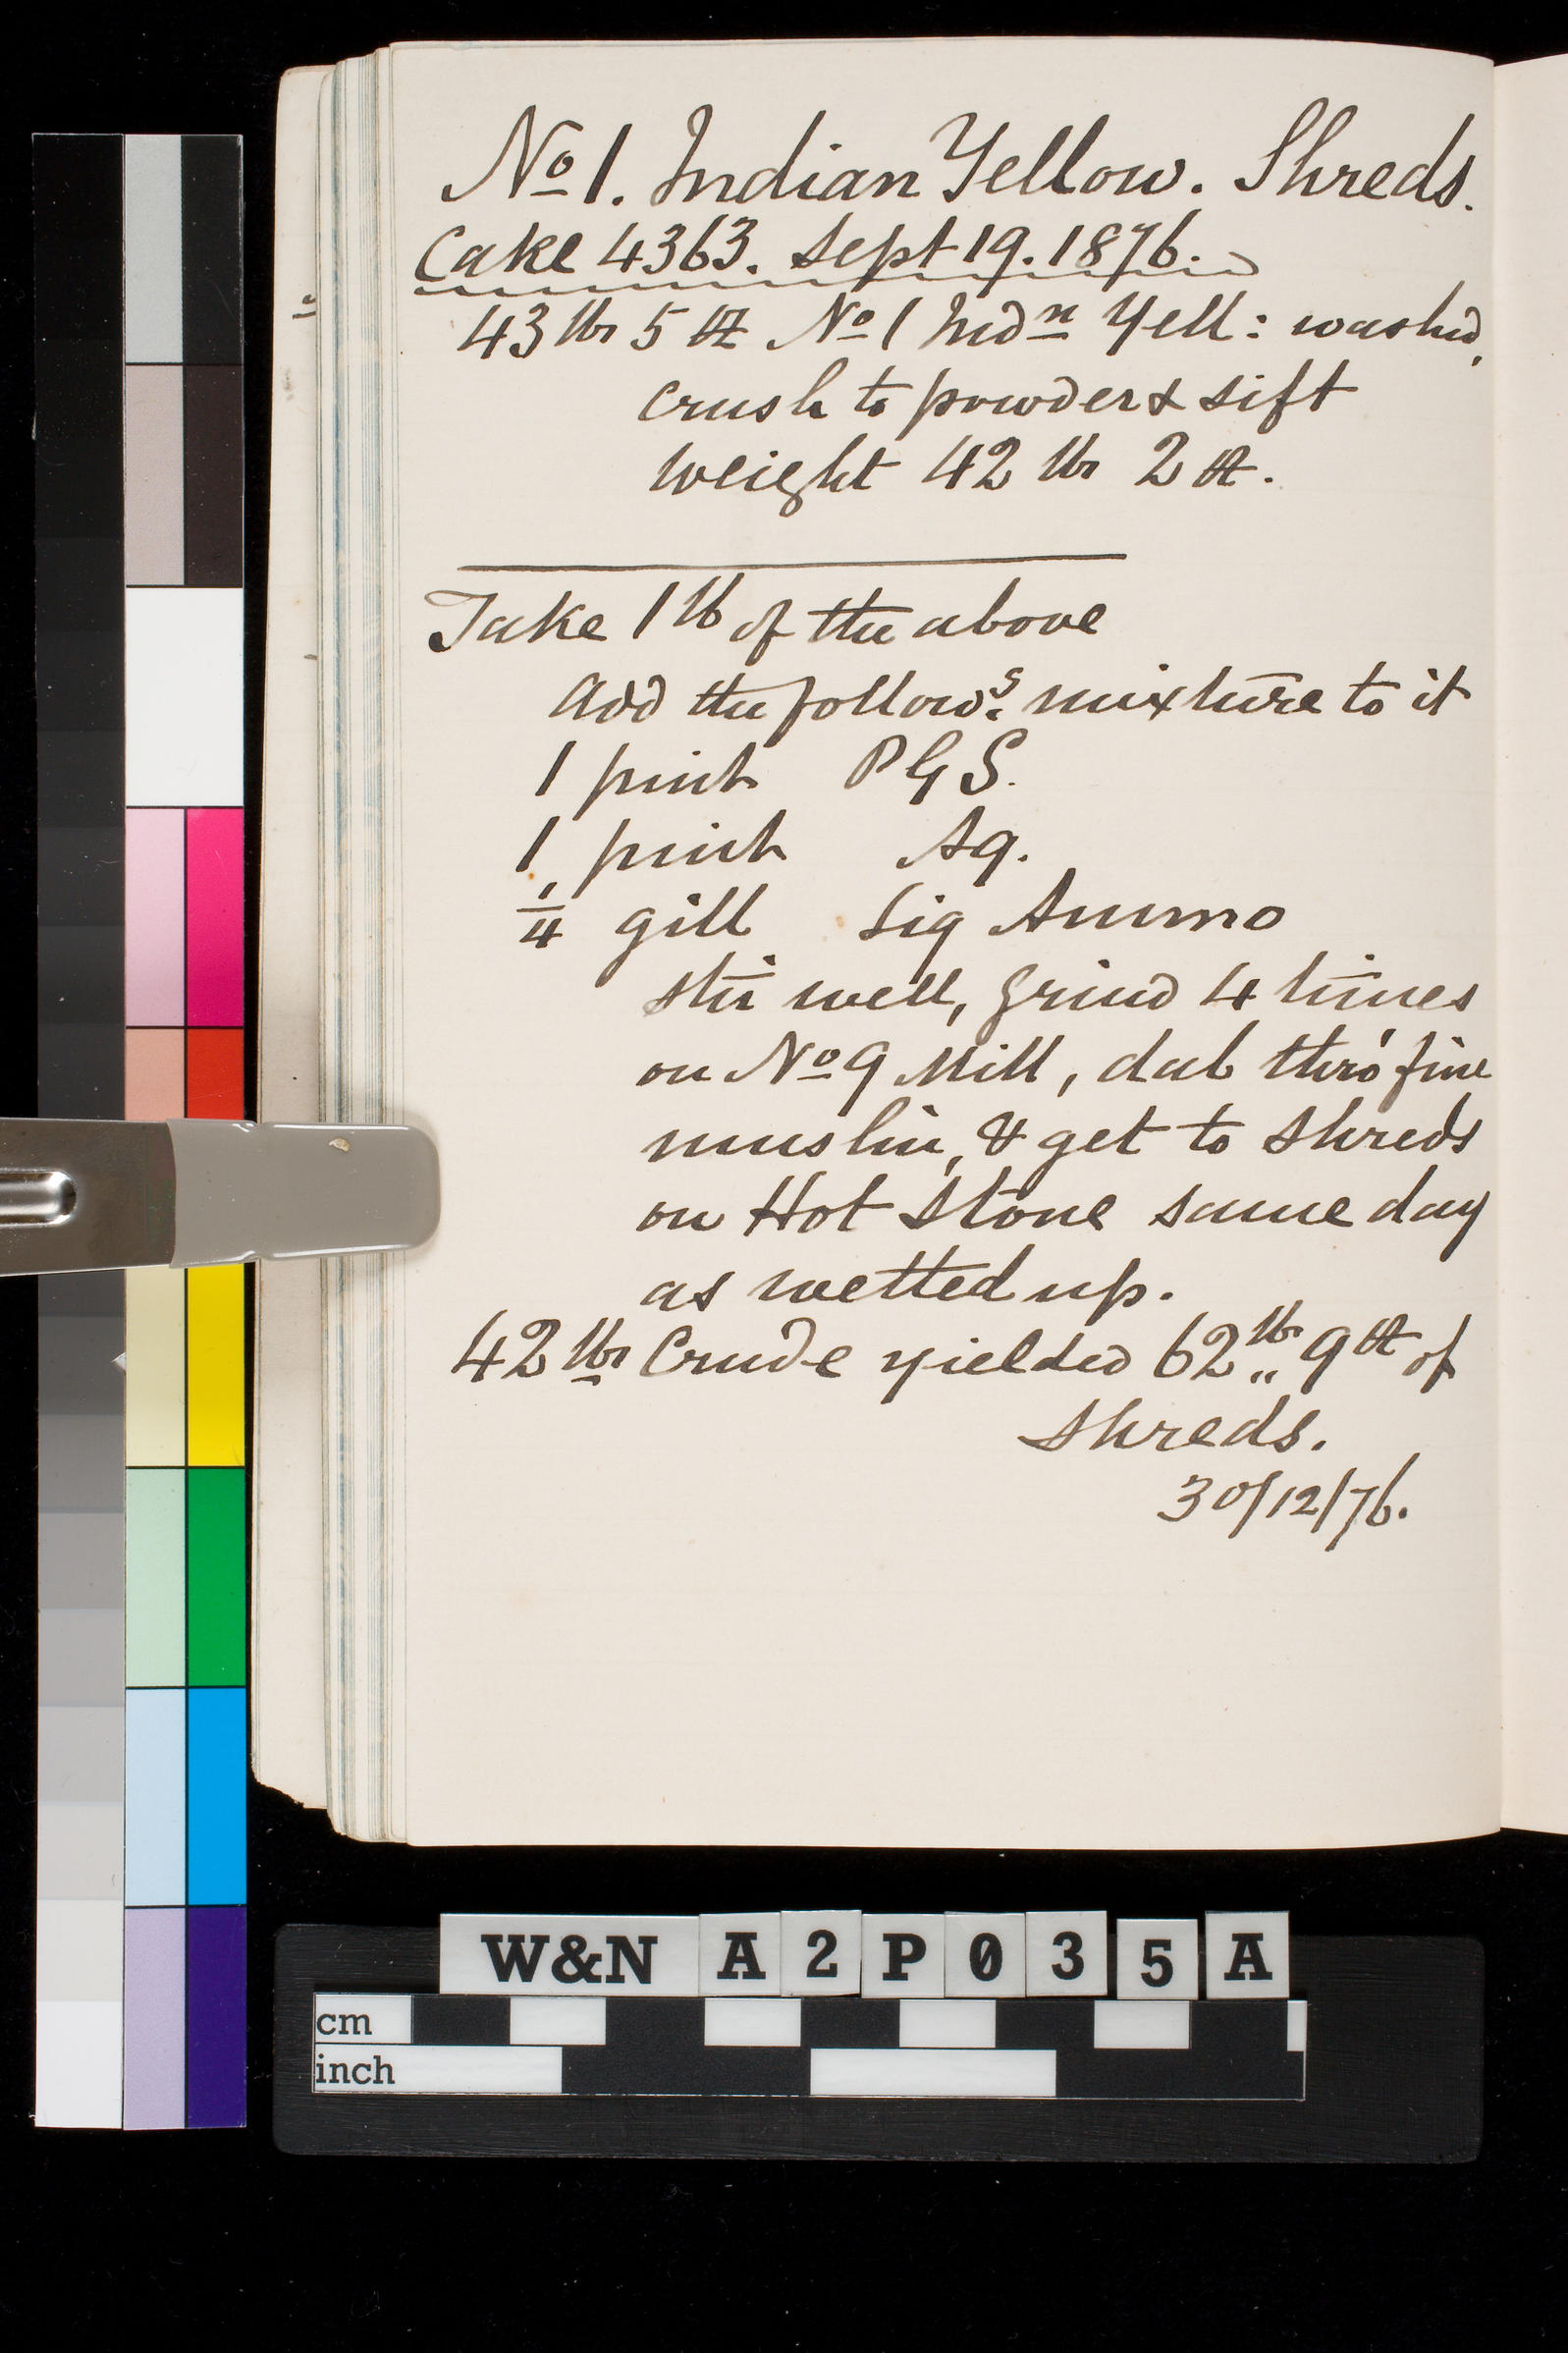 No 1. Indian Yellow. Shreds.
Cake 4363. Sept 19. 1876.
43 lbs 5 oz No 1 Indn Yell: washed,
crush to powder & sift
weight 42 lbs 2 oz.
Take 1 lb of the above
add the follows. mixture to it
1 pint PGS.
1 pint Aq.
1/4 gill Liq Ammo
stir well, grind 4 times
on No 9 Mill, dab thro' fine
muslin, & get to shreds
on Hot Stone same day
as wetted up.
42 lbs Crude yielded 62 lbs 9 oz of
shreds.
30/12/76.
W&N A2P035A
cm
inch